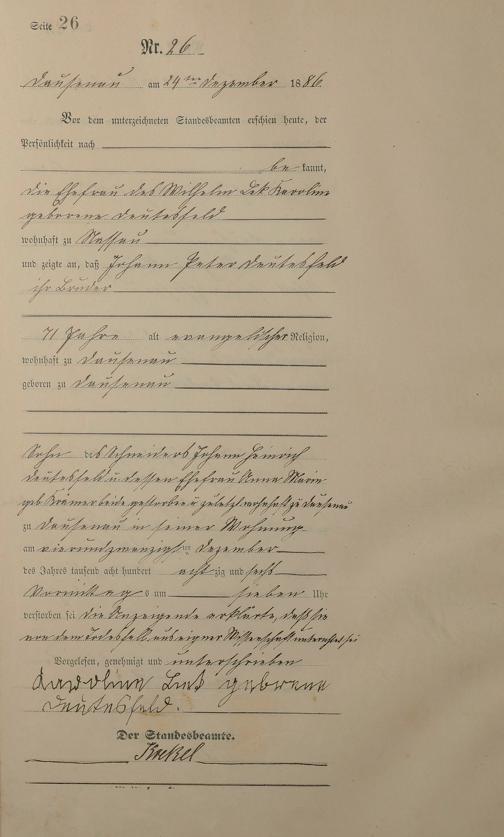 Seite 26
Nr. 26
Dausenau am 24ten Dezember 1886.
Vor dem unterzeichneten Standesbeamten erschien heute, der
Persönlichkeit nach
be kannt,
die Ehefrau des Wilhelm Karoline
geborene Deutesfeld
wohnhaft zu Nassau
und zeigte an, daß Johann Peter Deutesfeld
ihr Bruder
71 Jahre alt evangelischer Religion,
wohnhaft zu Dausenau
geboren zu Dausenau
Sohn des Schneiders Johann Heinrich
Deutesfeld u dessen Ehefrau Anna Maria
geb Krämer beide gestorben u zuletzt wohnhaft zu Dausenau
zu Dausenau in seiner Wohnung
am vierundzwanzigsten Dezember
des Jahres tausend acht hundert acht zig und sechs
Vormittags um sieben Uhr
verstorben sei die Anzeigende erklärte, daß sie
von dem Todesfall aus eigner Wissenschaft unterrichtet sei
Vorgelesen, genehmigt und unterschrieben
Karoline geborene
Deutesfeld.
Der Standesbeamte.